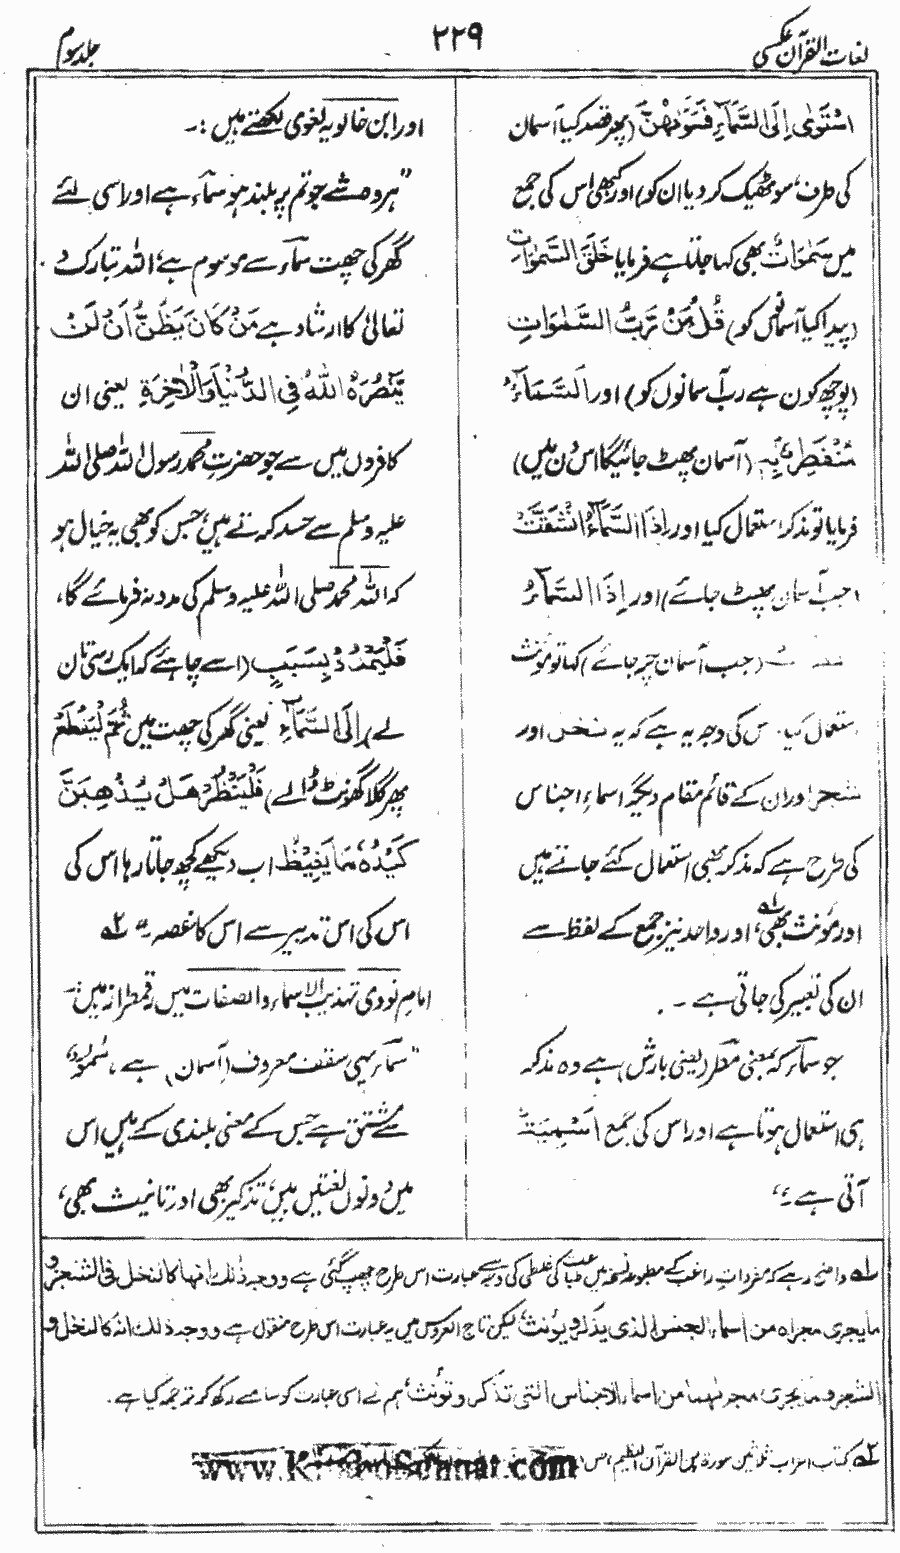 لغات القرآن عکسی
۲۲۹
جلد سوم
اسْتَوٰى اِلَى السَّمَآءِ فَسَوّٰىهُنَّ (پھر قصد کیا آسمان
کی طرف، سو ٹھیک کر دیا ان کو) اور کبھی اس کی جمع
میں سَمٰوَاتٌ بھی کہا جاتا ہے فرمایا خَلَقَ السَّمٰوَاتِ
(پیدا کیا آسمانوں کو) قُلْ مَنْ رَّبُّ السَّمٰوَاتِ
(پوچھ کون ہے رب آسمانوں کو) اور اَلسَّمَآءُ
مُنْفَطِرٌۢ بِهٖ (آسمان پھٹ جائیگا اس دن میں)
فرمایا تو مذکر استعمال کیا اور اِذَا السَّمَآءُ انْشَقَّتْ
(جب آسمان پھٹ جائے) اور اِذَا السَّمَآءُ
(جب آسمان چر جائے) کہا تو مؤنث
استعمال کیا، اس کی وجہ یہ ہے کہ یہ نخل اور
شجر اور ان کے قائم مقام دیگر اسماء اجناس
کی طرح ہے کہ مذکر بھی استعمال کئے جاتے ہیں
اور مؤنث بھی،۱ اور واحد نیز جمع کے لفظ سے
ان کی تعبیر کی جاتی ہے ۔
جو سمآء کہ بمعنی مطر (یعنی بارش) ہے وہ مذکر
ہی استعمال ہوتا ہے اور اس کی جمع اَسْمِيَةٌ
آتی ہے ۔"
اور ابن خالویہ لغوی لکھتے ہیں :۔
"ہر وہ شے جو تم پر بلند ہو سمآء ہے اور اسی لئے
گھر کی چھت سمآء سے موسوم ہے، اللہ تبارک و
تعالیٰ کا ارشاد ہے مَنْ كَانَ يَظُنُّ اَنْ لَّنْ
يَّنْصُرَهُ اللّٰهُ فِي الدُّنْيَا وَالْاٰخِرَةِ یعنی ان
کافروں میں سے جو حضرت محمد رسول اللہ صلی اللہ
علیہ وسلم سے حسد کرتے ہیں، جس کو بھی یہ خیال ہو
کہ اللہ محمد صلی اللہ علیہ وسلم کی مدد نہ فرمائے گا،
فَلْيَمْدُدْ بِسَبَبٍ (اسے چاہئے کہ ایک رسی تان
لے) اِلَى السَّمَآءِ یعنی گھر کی چھت میں ثُمَّ لْيَقْطَعْ
پھر گلا گھونٹ ڈالے) فَلْيَنْظُرْ هَلْ يُذْهِبَنَّ
كَيْدُهٗ مَا يَغِيْظُ اب دیکھے کچھ جاتا رہا اس کی
اس کی اس تدبیر سے اس کا غصہ ۔" ۲
امام نووی تہذیب الاسماء والصفات میں رقمطراز ہیں:۔
"سمآء یہی سقف معروف (آسمان) ہے، سُمُوّ
سے مشتق ہے جس کے معنی بلندی کے ہیں اس
میں دونوں لغتیں ہیں، تذکیر بھی اور تانیث بھی،
۱ واضح رہے کہ مفردات راغب کے مطبوعہ نسخہ میں طباعت کی غلطی کی وجہ سے عبارت اس طرح چھپ گئی ہے ووجہ ذلک انہا کالنخل فی الشجر و
ما یجری مجراہ من اسماء الجنس الذی یذکر ویؤنث، لیکن تاج العروس میں یہ عبارت اس طرح منقول ہے ووجہ ذلک انہ کالنخل و
الشجر وما یجری مجراہما من اسماء الاجناس التی تذکر وتؤنث، ہم نے اسی عبارت کو سامنے رکھ کر ترجمہ کیا ہے۔
۲ کتاب اعراب ثلاثین سورۃ من القرآن العظیم، ص